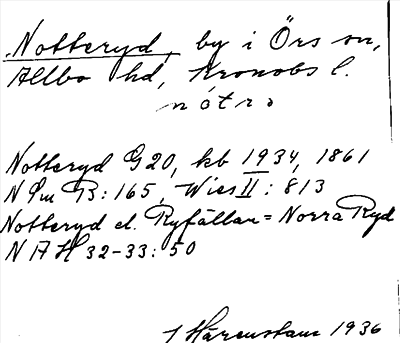 Notteryd, by i Örs sn,
Allbo hd, Kronobs l.
nòtrə
Notteryd G20, kb 1934, 1861
N Sm B: 165, Wies II: 813
Notteryd el. Ryfällan = Norra Ryd
N A H 32-33: 50
1936